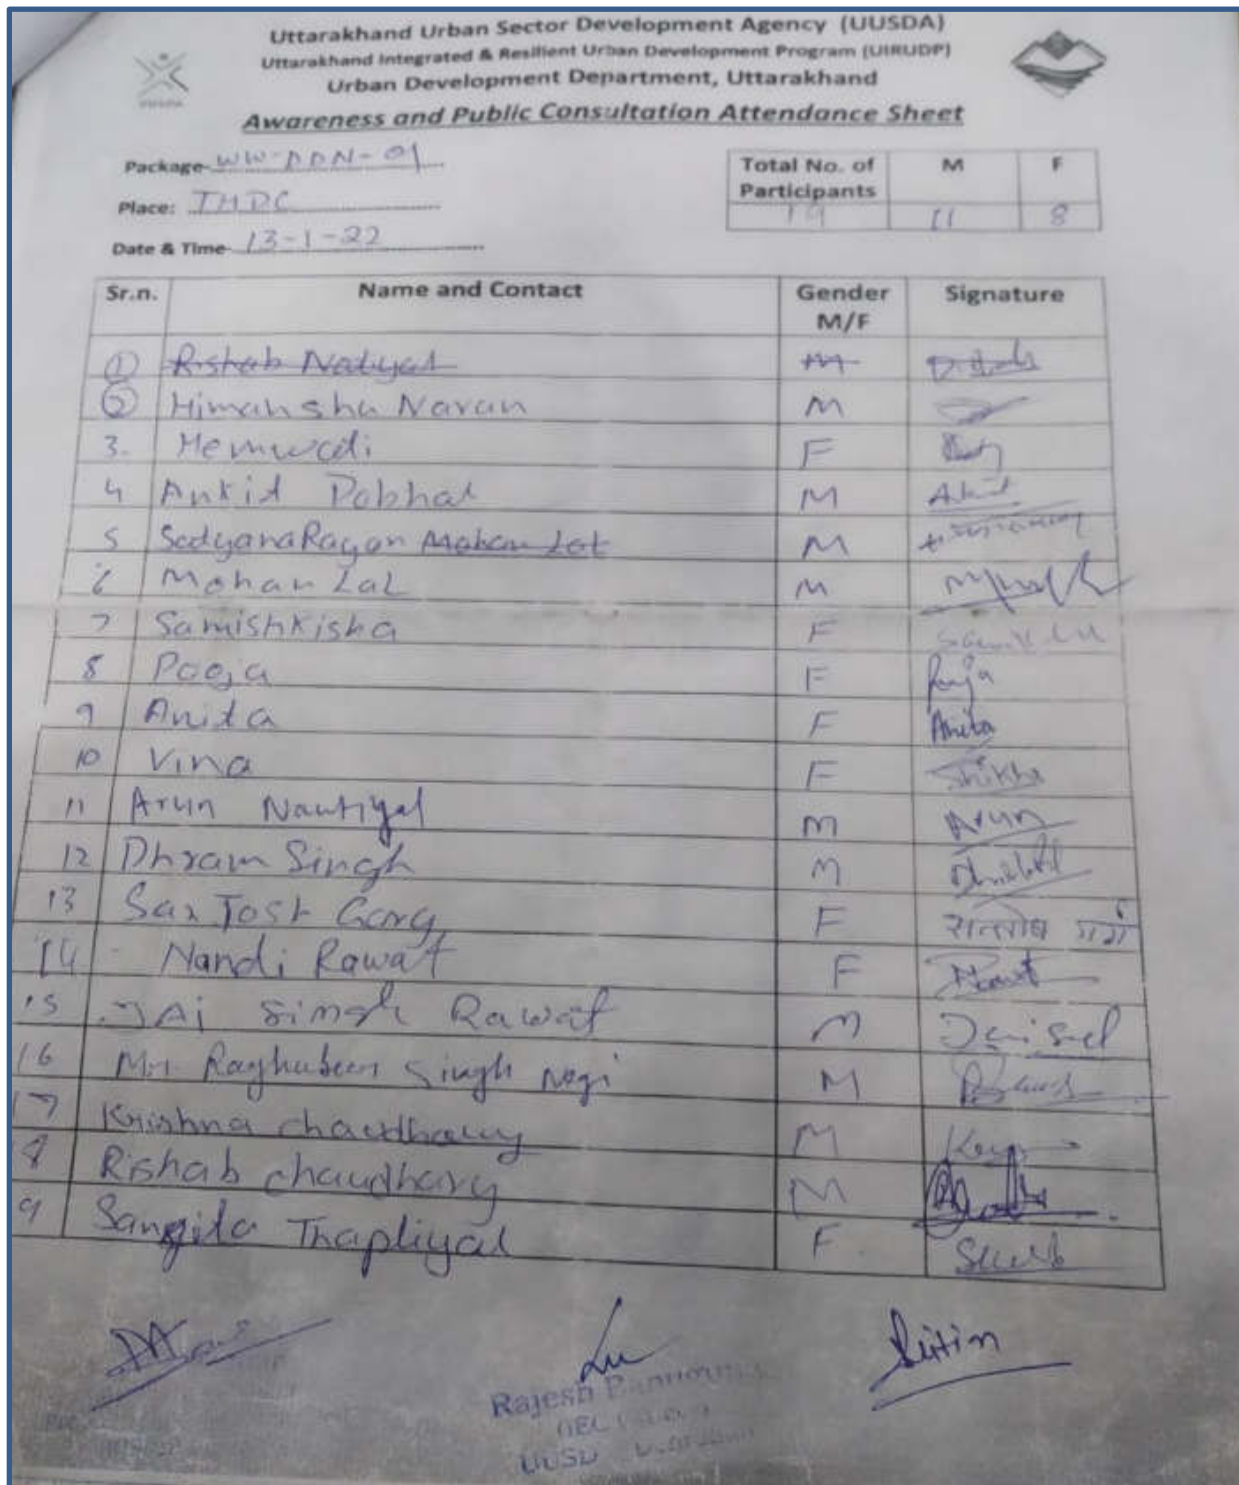 Uttarakhand Urban Sector Development Agency (UUSDA)
Uttarakhand Integrated & Resilient Urban Development Program (UIRUDP)
Urban Development Department, Uttarakhand
Awareness and Public Consultation Attendance Sheet
Package- WW-DDN-01
Place: THDC
Date & Time- 13-1-22
Total No. of Participants M F
19 11 8
Sr.n. Name and Contact Gender M/F Signature
1 Rishab Natiyal M
2 Himanshu Naran M
3. Hemwati F
4 Ankit Dobhal M Ankit
5 SadyanaRayan Mohan Lat M
6 Mohan Lal M
7 Samishkisha F
8 Pooja F Puja
9 Anita F Anita
10 Vina F Shikha
11 Arun Nautiyal M Arun
12 Dhram Singh M
13 San Tosh Garg F सन्तोष गर्ग
14 - Nandi Rawat F Rawat
15 Jai Singh Rawat M
16 Mr. Raghubeer Singh Negi M
17 Krishna chaudhary M
8 Rishab chaudhary M
9 Sangila Thapliyal F
Nitin
Rajesh